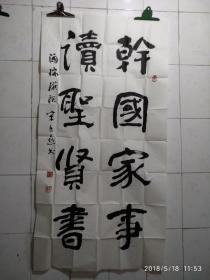 幹國家事
讀聖賢書
2018/5/18 11:53